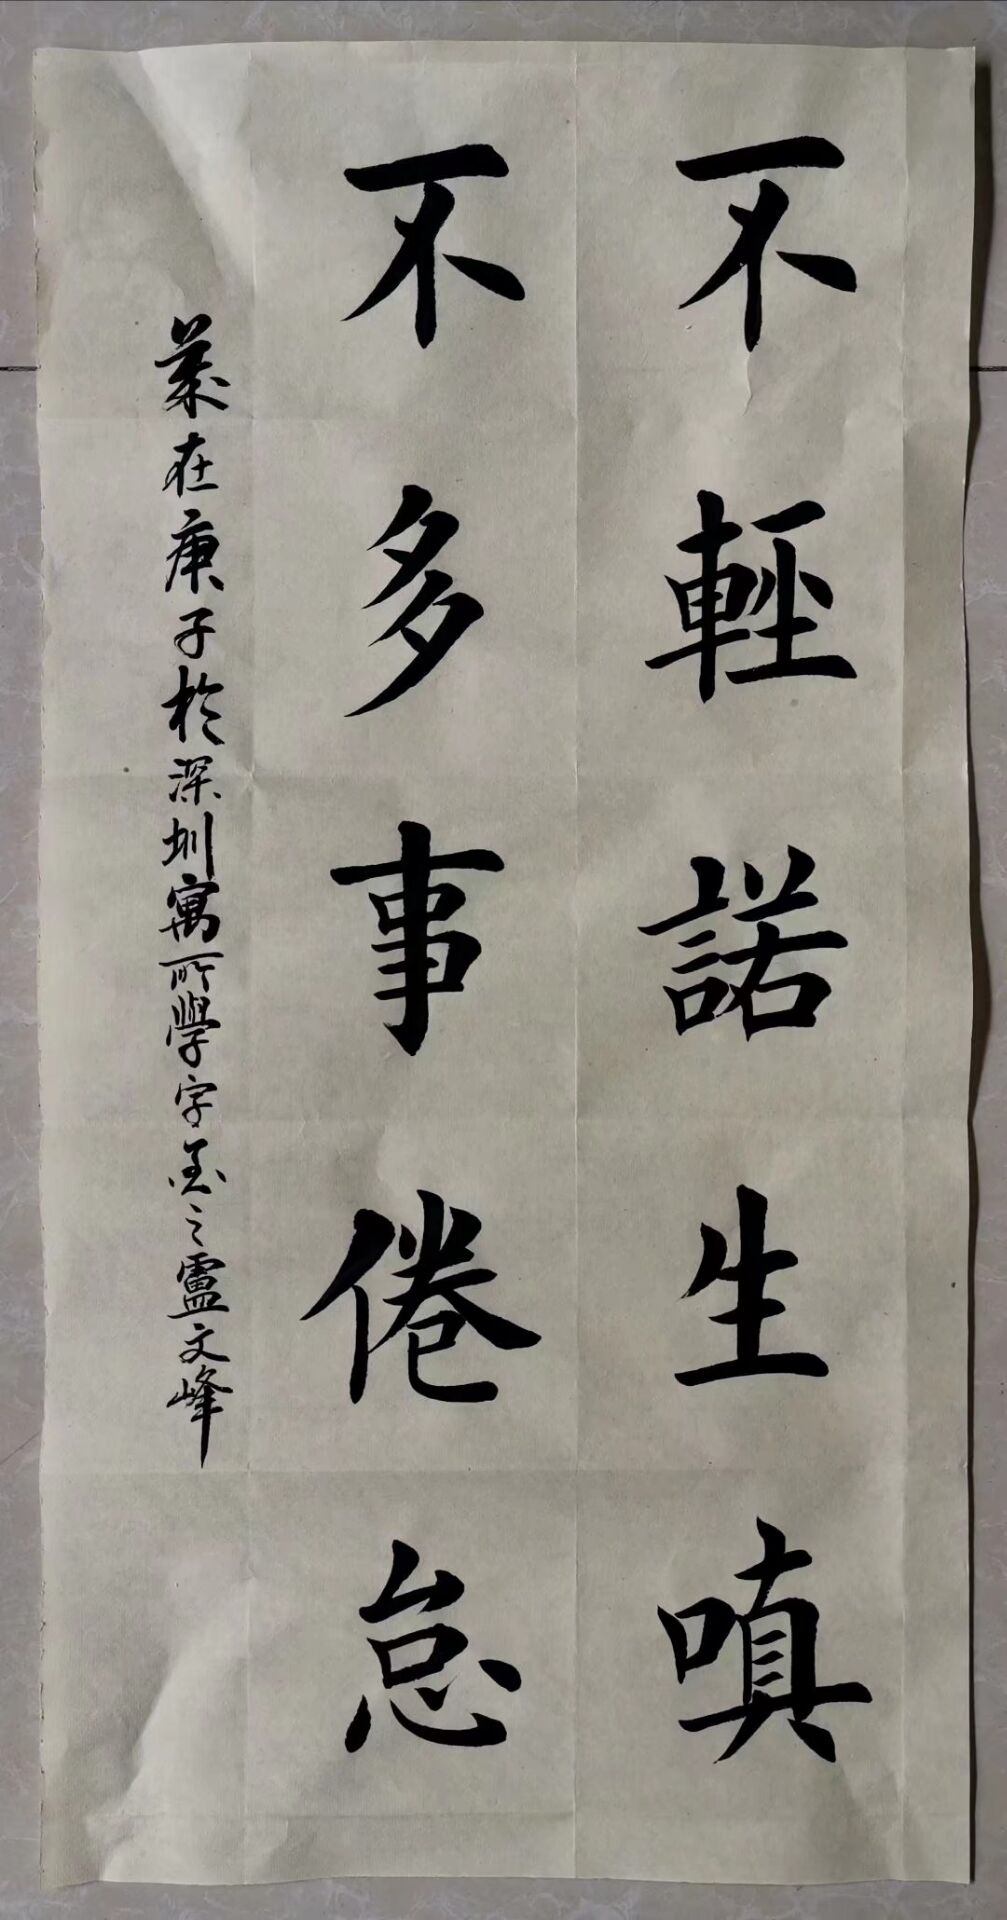 不輕諾生嗔
不多事倦怠
歲在庚子於深圳寓所學字 之盧文峰